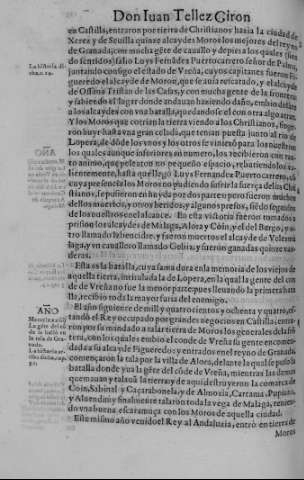 Don Iuan Tellez Giron
en Castilla, entraron por tierra de Christianos hazia la ciudad de
Xerez y de Seuilla quinze alcaydes Moros los mejores del reyno
de Granada, con mucha gẽte de cauallo y de pie: a los quales
sentidos, salio Luys Fernãdez Puerto carrero señor de Palma,
juntando consigo el estado de Vreña, cuyos capitanes fueron
el alcayde de Moron, y el alcayde
de Ossuna Tristan de las Casas, y con mucha gente de la frontera
y sabiendo el lugar donde andauan haziendo daño, embio delante
a los alcaydes con vna batalla, quedandose el con otra algo atras.
Y los Moros que corrian la tierra viendo a los Christianos,
ron huyr hasta vna gran celada, que tenian puesta junto al rio de
Lopera, de dõde los vnos y los otros se vinierõ para los nuestros
los quales aunque inferiores en numero, los recibieron con tan
to animo, que pelearon vn pequeño espacio,
lientemente, hasta q̃ llego Luys Fernandez Puerto carrero,
cuya presencia los Moros no pudiendo sufrir la fuerça de los Chri
stianos, se pusieron en huyda por dos partes: pero fueron muchos
dellos muertos, y otros heridos, y algunos presos, siẽdo seguidos
de los nuestros en el alcance. En esta victoria fueron tomados a
prision los alcaydes de Malaga, Alora y Coin, y el del Bergo, y
tro llamado y fueron muertos el alcayde de Velezma
laga, y vn caudillo llamado Gebiz, y fueron ganadas quinze van
deras.
Esta es la batalla, cuya fama dura en la memoria de los viejos de
aquella tierra, intitulada la de Lopera, en la qual la gente del con
de Vreña no fue la menor parte: pues lleuando la primera bata
lla, recibio toda la mayor furia del enemigo.
AÑO
El año siguiente de mill y quatrocientos y ochenta y quatro,
tanda el Rey ocupado por grandes negocios en Castilla,
ron por su mandado a talar tierra de Moros los generales de la frõ
tera, con los quales embio el conde de Vreña su gente encomen
dada a su alcayde y entrando en el reyno de Granada
començaron la tala por la villa de Alora, delante la qual se puso la
batalla donde yua la gẽte del cõde de Vreña, mientras las demas
quemauan y talauã la tierra: y de aqui destruyeron la comarca de
Coin, Sabinal y Caçarabonela, y de Almoxia, Cartama, Pupiana,
y Alhendin y finalmente talaron toda la vega de Malaga, tenien
do vna buena escaramuça con los Moros de aquella ciudad.
Este mismo año venido el Rey al Andaluzia, entrò en tierra de
Moros